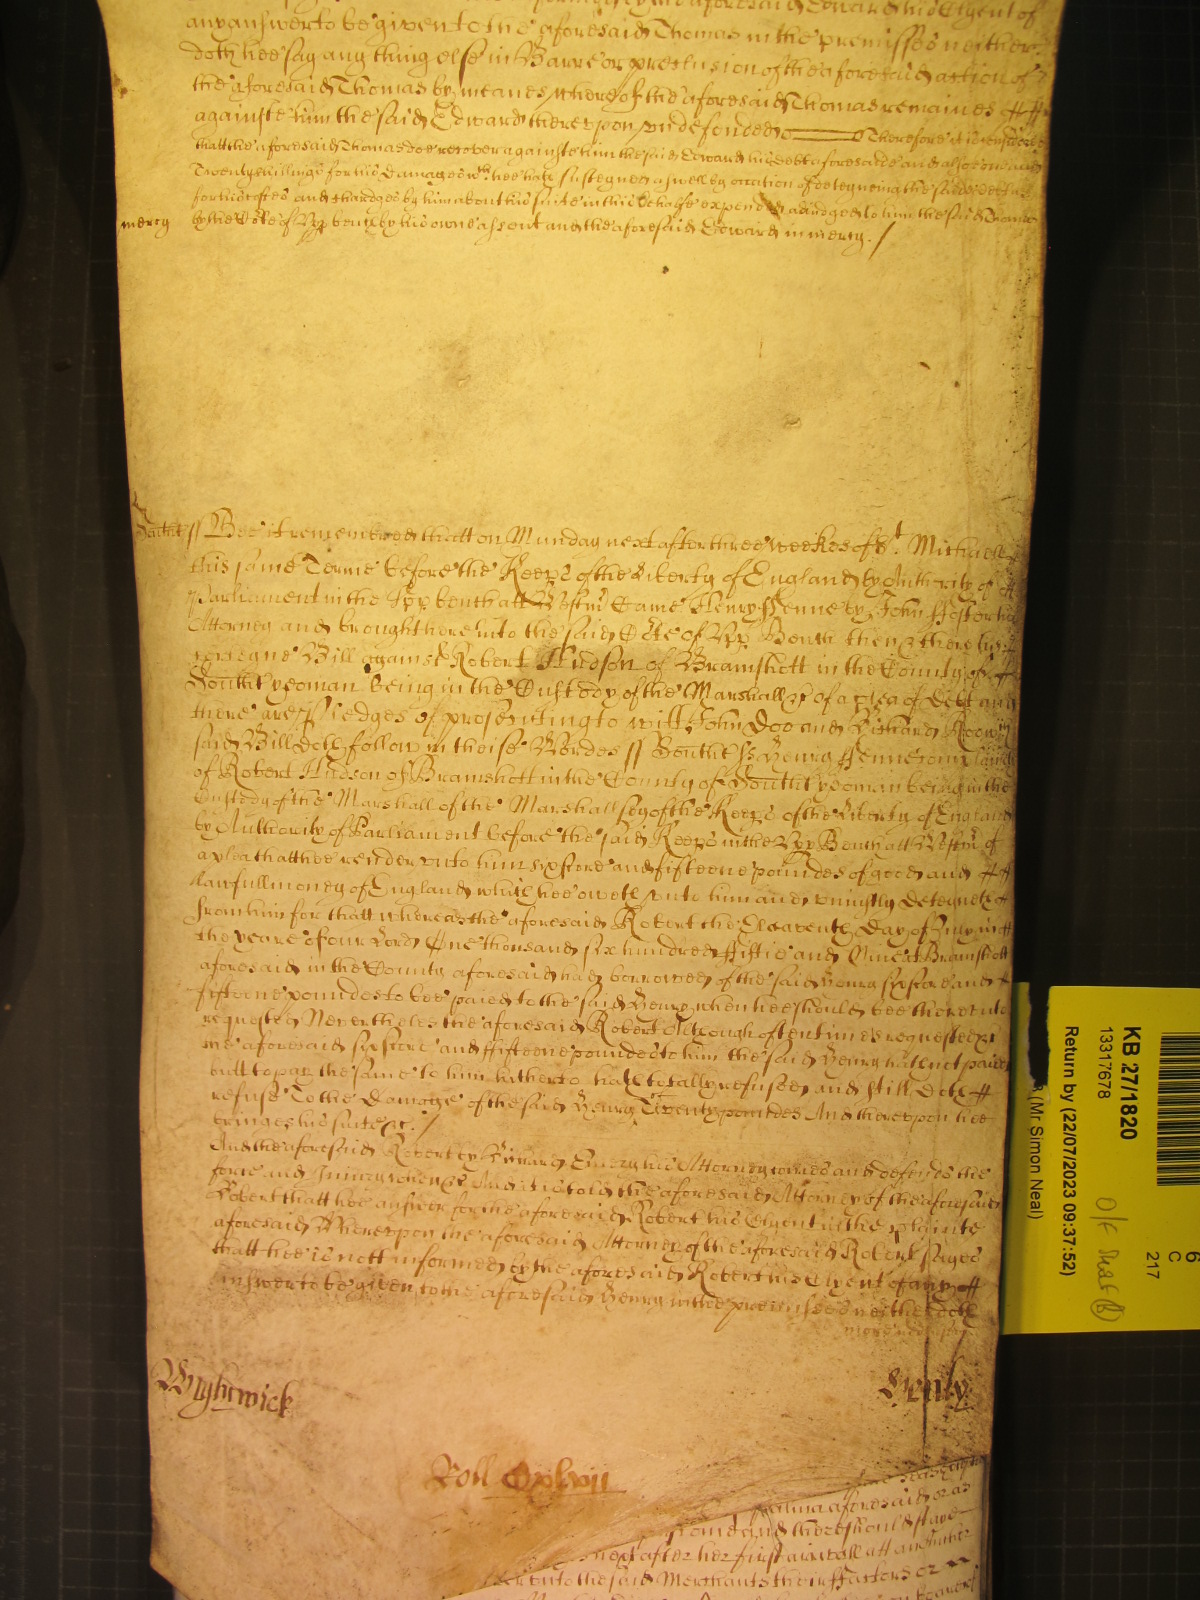 any answer to be given to the aforesaid Thomas in the premisses neither
doth hee say any thing else in Barre or preclusion of the aforesaid action of
the aforesaid Thomas by meanes whereof the aforesaid Thomas remaines
againste him the said Edward thereupon undefended Therefore it is considered
that the aforesaid Thomas doe recover againste him the said Edward his debt aforesaid and alsoe
Twenty shillings for his Damages wch hee hath susteyned aswell by occation of deteyneing the said debt as
for his costes and chardges by him about his suite in this behalfe expended adiudged to him the said Thomas
mercy by the Cote of Upp bench by his owne assent and the aforesaid Edward in mercy. /
Southt // Bee it remembred thatt on Munday next after three weekes of St. Michaell
this same Terme before the Keeps of the Liberty of England by Authority of
Parliament in the Upp bench att Westmr Came Henry Fenne by John Foster his
Attorney and brought here into the said Cote of Upp Bench then & there his
certeyne Bill against Robert Hudson of Bramshott in the County of
Southt yeoman being in the Custody of the Marshall &c of a plea of Debt and
there are pledges of prosecuting to witt John Doe and Richard Roe wch
said Bill doth follow in theise Wordes // Southt ss Henry Fenne complaines
of Robert Hudson of Bramshott in the County of Southt yeoman being in the
Custody of the Marshall of the Marshallsey of the Keeps of the Liberty of England
by Authority of Parliament before the said Keeps in the Upp Bench att Westmr of
a plea thatt hee render unto him sixscore and fifteene poundes of good and
lawfull money of England which hee oweth unto him and uniustly deteyneth
from him for thatt whereas the aforesaid Robert the Eleaventh Day of July in
the yeare of our Lord One thousand six hundred fiftie and Nine at Bramshott
aforesaid in the County aforesaid had borrowed of the said Henry sixscore and
fifteene poundes to bee paied to the said Henry when hee should bee thereunto
requested Nevertheles the aforesaid Robert Although oftentimes requested &c
the aforesaid sixscore and fifteene poundes to him the said Henry hath not paied
butt to pay the same to him hitherto hath totally refused and still doth
refuse To the Damage of the said Henry Twenty poundes And thereupon hee
bringes his suite &c. /
And the aforesaid Robert by Richard Emery his Attorney comes and defends the
force and Iniury when &c And it is told the aforesaid Attorney of the aforesaid
Robert thatt hee answer for the aforesaid Robert his Clyent in the plainte
aforesaid Whereupon the aforesaid Attorney of the aforesaid Robert sayes
thatt hee is nott informed by the aforesaid Robert his Clyent of any
answer to be given to the aforesaid Henry in the premisses neither doth
Wightwick
Henly
Roll Cxlvii
aforesaid
and there should stay
next after her first arrivall att
unto the said Merchants their Factors or
KB 27/1820
13317678
Return by (22/07/2023 09:37:52)
(Mr Simon Neal)
6
C
217